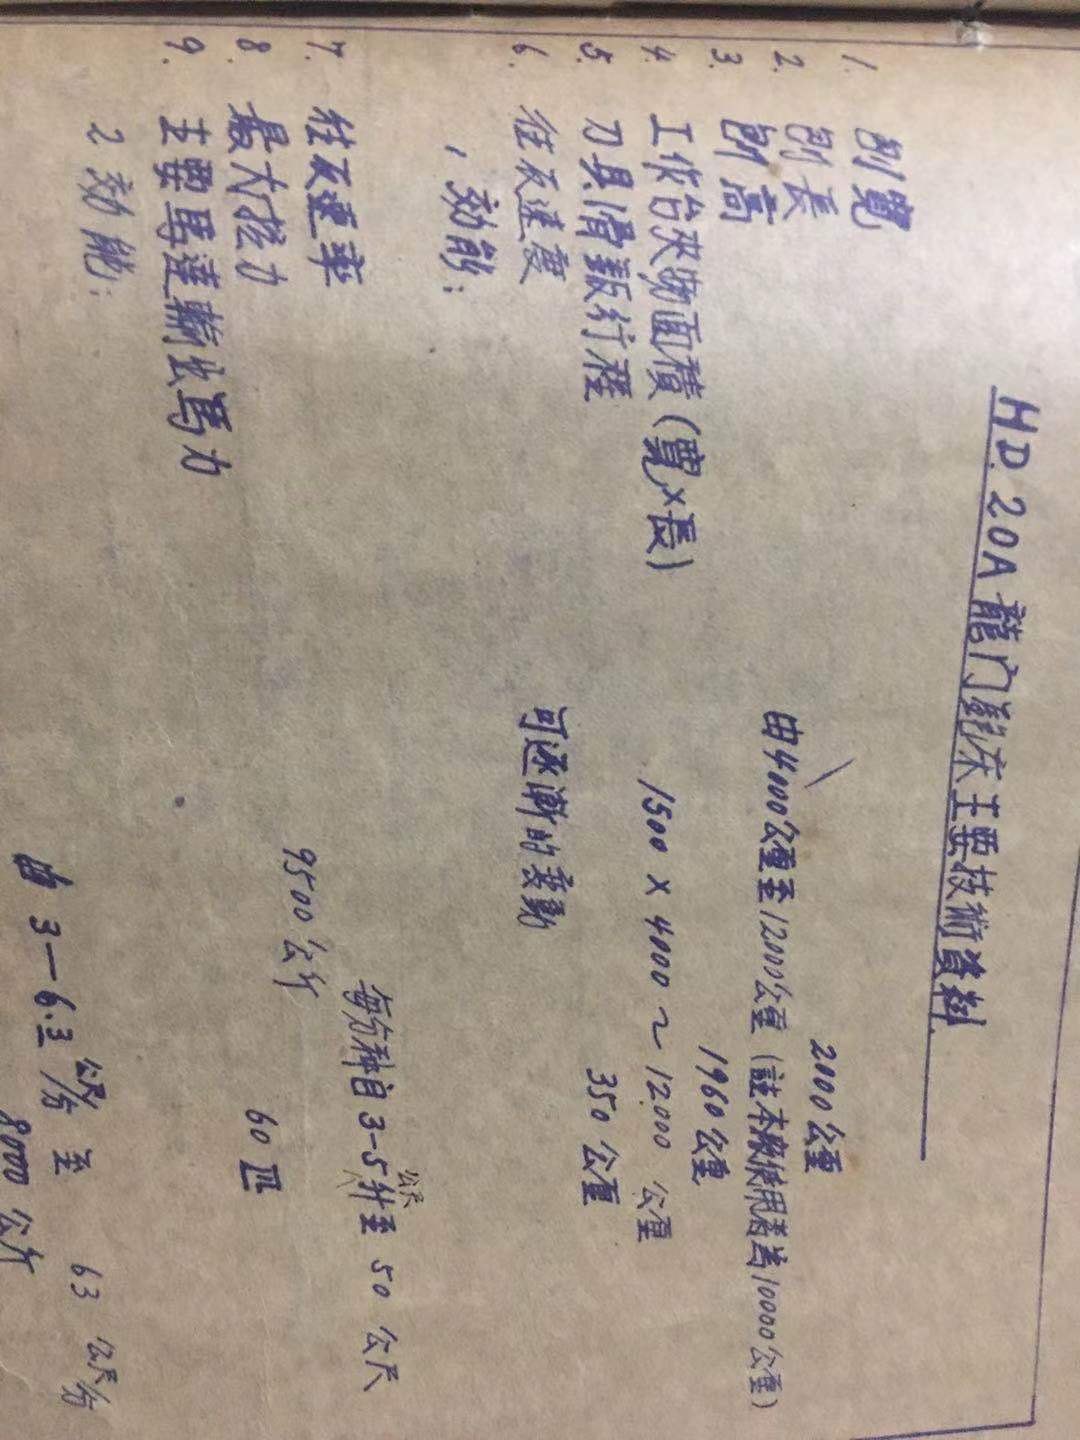 HD.20A 龍门鉋床主要技術資料
1. 刨寬 2000公厘
2. 刨長 由4000公厘至12000公厘(註本機使用者為10000公厘)
3. 刨高 1960公厘
4. 工作台夾物面積(寬×長) 1500 × 4000 ~ 12000 公厘
5. 刀具滑鞍行程 350 公厘
6. 往反速度 可逐漸的変動
1 效能:
7. 往反速率 每分种自3-5公尺 至 50 公尺
8. 最大拉力 9500 公斤
9. 主要馬達輸出馬力 60 匹
2 效能:
由 3—6.3 公尺/分 至 63 公尺/分
8000 公斤